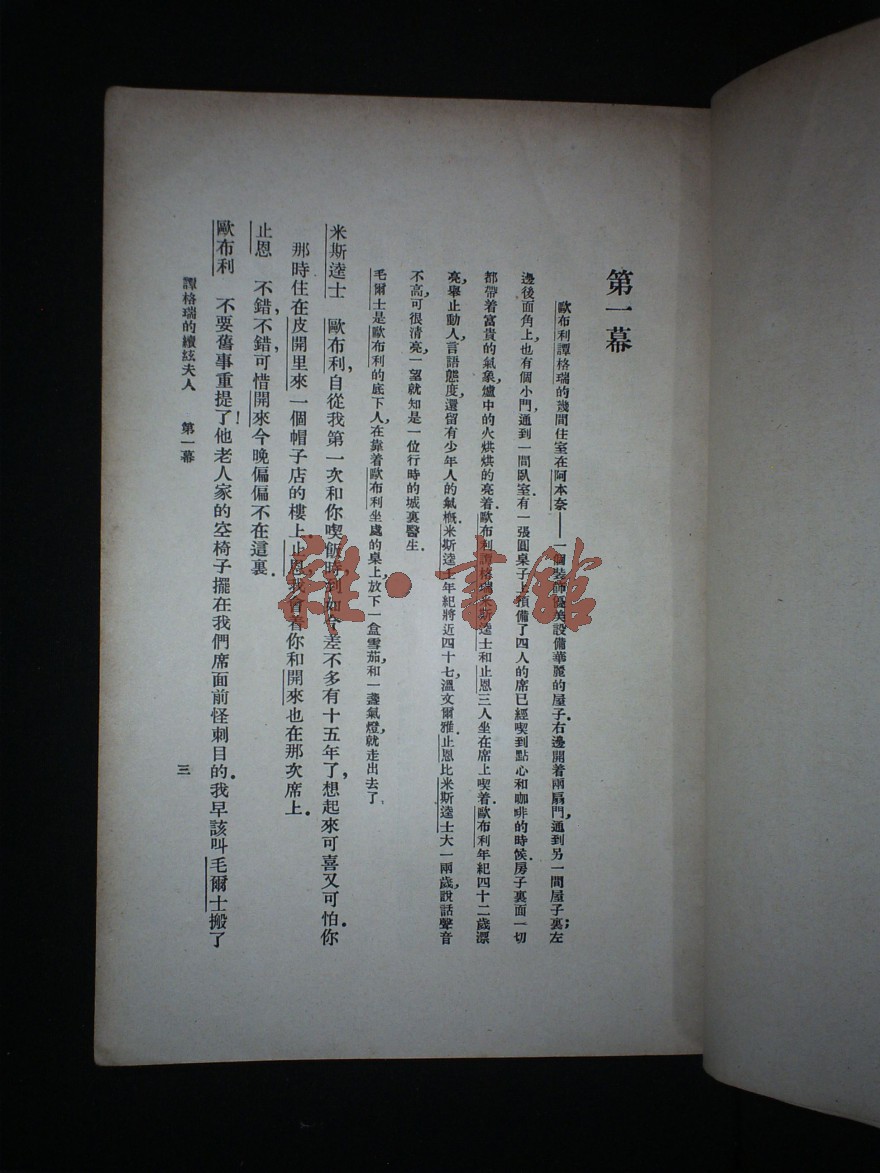 第一幕
歐布利譚格瑞的幾間住室在阿本奈——一個裝飾優美設備華麗的屋子．右邊開着兩扇門，通到另一間屋子裏；左
邊後面角上，也有個小門，通到一間臥室．有一張圓桌子上預備了四人的席已經喫到點心和咖啡的時候．房子裏面一切
都帶着富貴的氣象，爐中的火烘烘的亮着．歐布利譚格瑞米斯逵士和止恩三人坐在席上喫着．歐布利年紀四十二歲漂
亮，舉止動人，言語態度，還留有少年人的氣概．米斯逵士年紀將近四十七，溫文爾雅．止恩比米斯逵士大一兩歲，說話聲音
不高，可很清亮，一望就知是一位行時的城裏醫生．
毛爾士是歐布利的底下人，在靠着歐布利坐處的桌上放下一盒雪茄，和一盞氣燈，就走出去了．
米斯逵士　歐布利，自從我第一次和你喫飯時，到如今差不多有十五年了，想起來可喜又可怕．你
那時住在皮開里來一個帽子店的樓上．止恩，我會着你和開來也在那次席上．
止恩　不錯，不錯，可惜開來今晚偏偏不在這裏．
歐布利　不要舊事重提了！他老人家的空椅子擺在我們席面前怪刺目的．我早該叫毛爾士搬了
譚格瑞的續絃夫人　第一幕
三
雜·書館